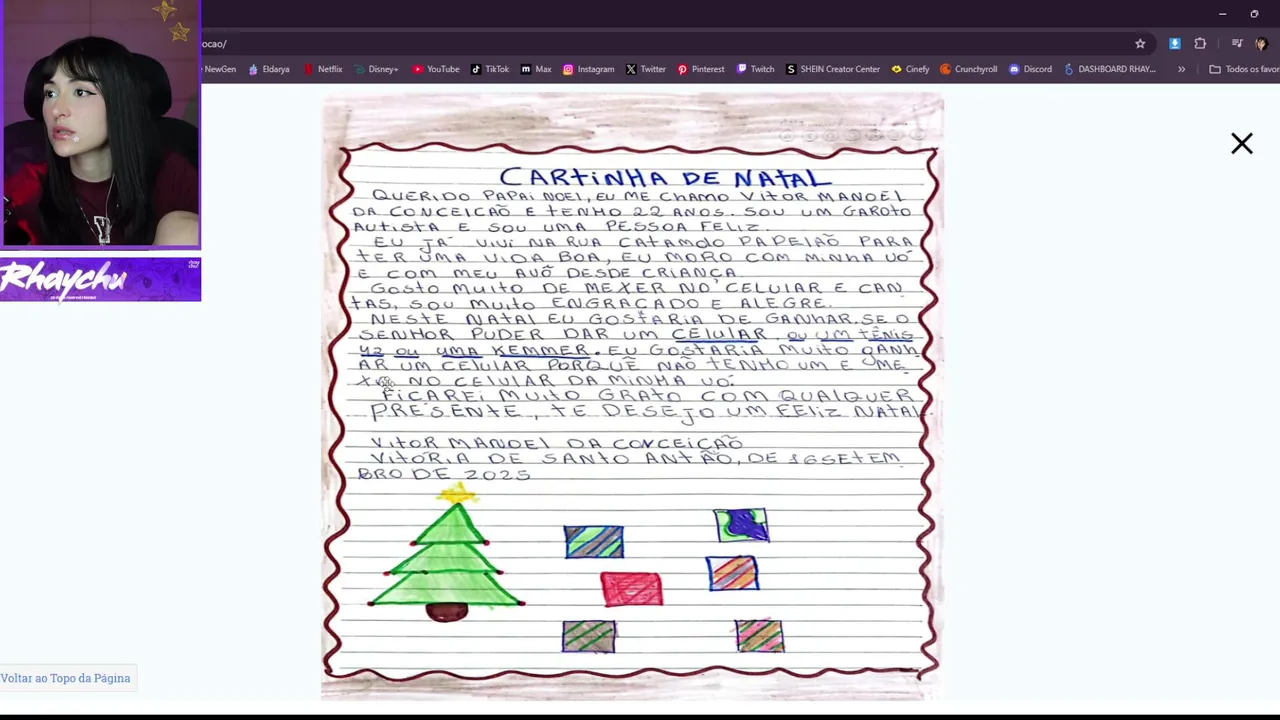 ocao/
NewGen
Eldarya
Netflix
Disney+
YouTube
TikTok
Max
Instagram
Twitter
Pinterest
Twitch
SHEIN Creator Center
Cinefy
Crunchyroll
Discord
DASHBOARD RHAY...
Todos os favor
Rhaychu
CARTINHA DE NATAL
QUERIDO PAPAI NOEL, EU ME CHAMO VITOR MANOEL
DA CONCEICÃO E TENHO 22 ANOS. SOU UM GAROTO
AUTISTA E SOU UMA PESSOA FELIZ.
EU JÁ VIVI NA RUA CATAMDO PAPELÃO PARA
TER UMA VIDA BOA, EU MORO COM MINHA VÓ
E COM MEU AVÔ DESDE CRIANÇA.
GOSTO MUITO DE MEXER NO CELULAR E CAN
TAS, SOU MUITO ENGRAÇADO E ALEGRE.
NESTE NATAL EU GOSTARIA DE GANHAR. SE O
SENHOR PUDER DAR UM CELULAR, OU UM TÊNIS
42 OU UMA KEMMER. EU GOSTARIA MUITO GANH
AR UM CELULAR PORQUÊ NÃO TENHO UM E ME
NO CELULAR DA MINHA VÓ.
FICAREI MUITO GRATO COM QUALQUER
PRESENTE, TE DESEJO UM FELIZ NATAL
VITOR MANOEL DA CONCEIÇÃO
VITORIA DE SANTO ANTÃO, DE 16 SETEM
BRO DE 2025
Voltar ao Topo da Página